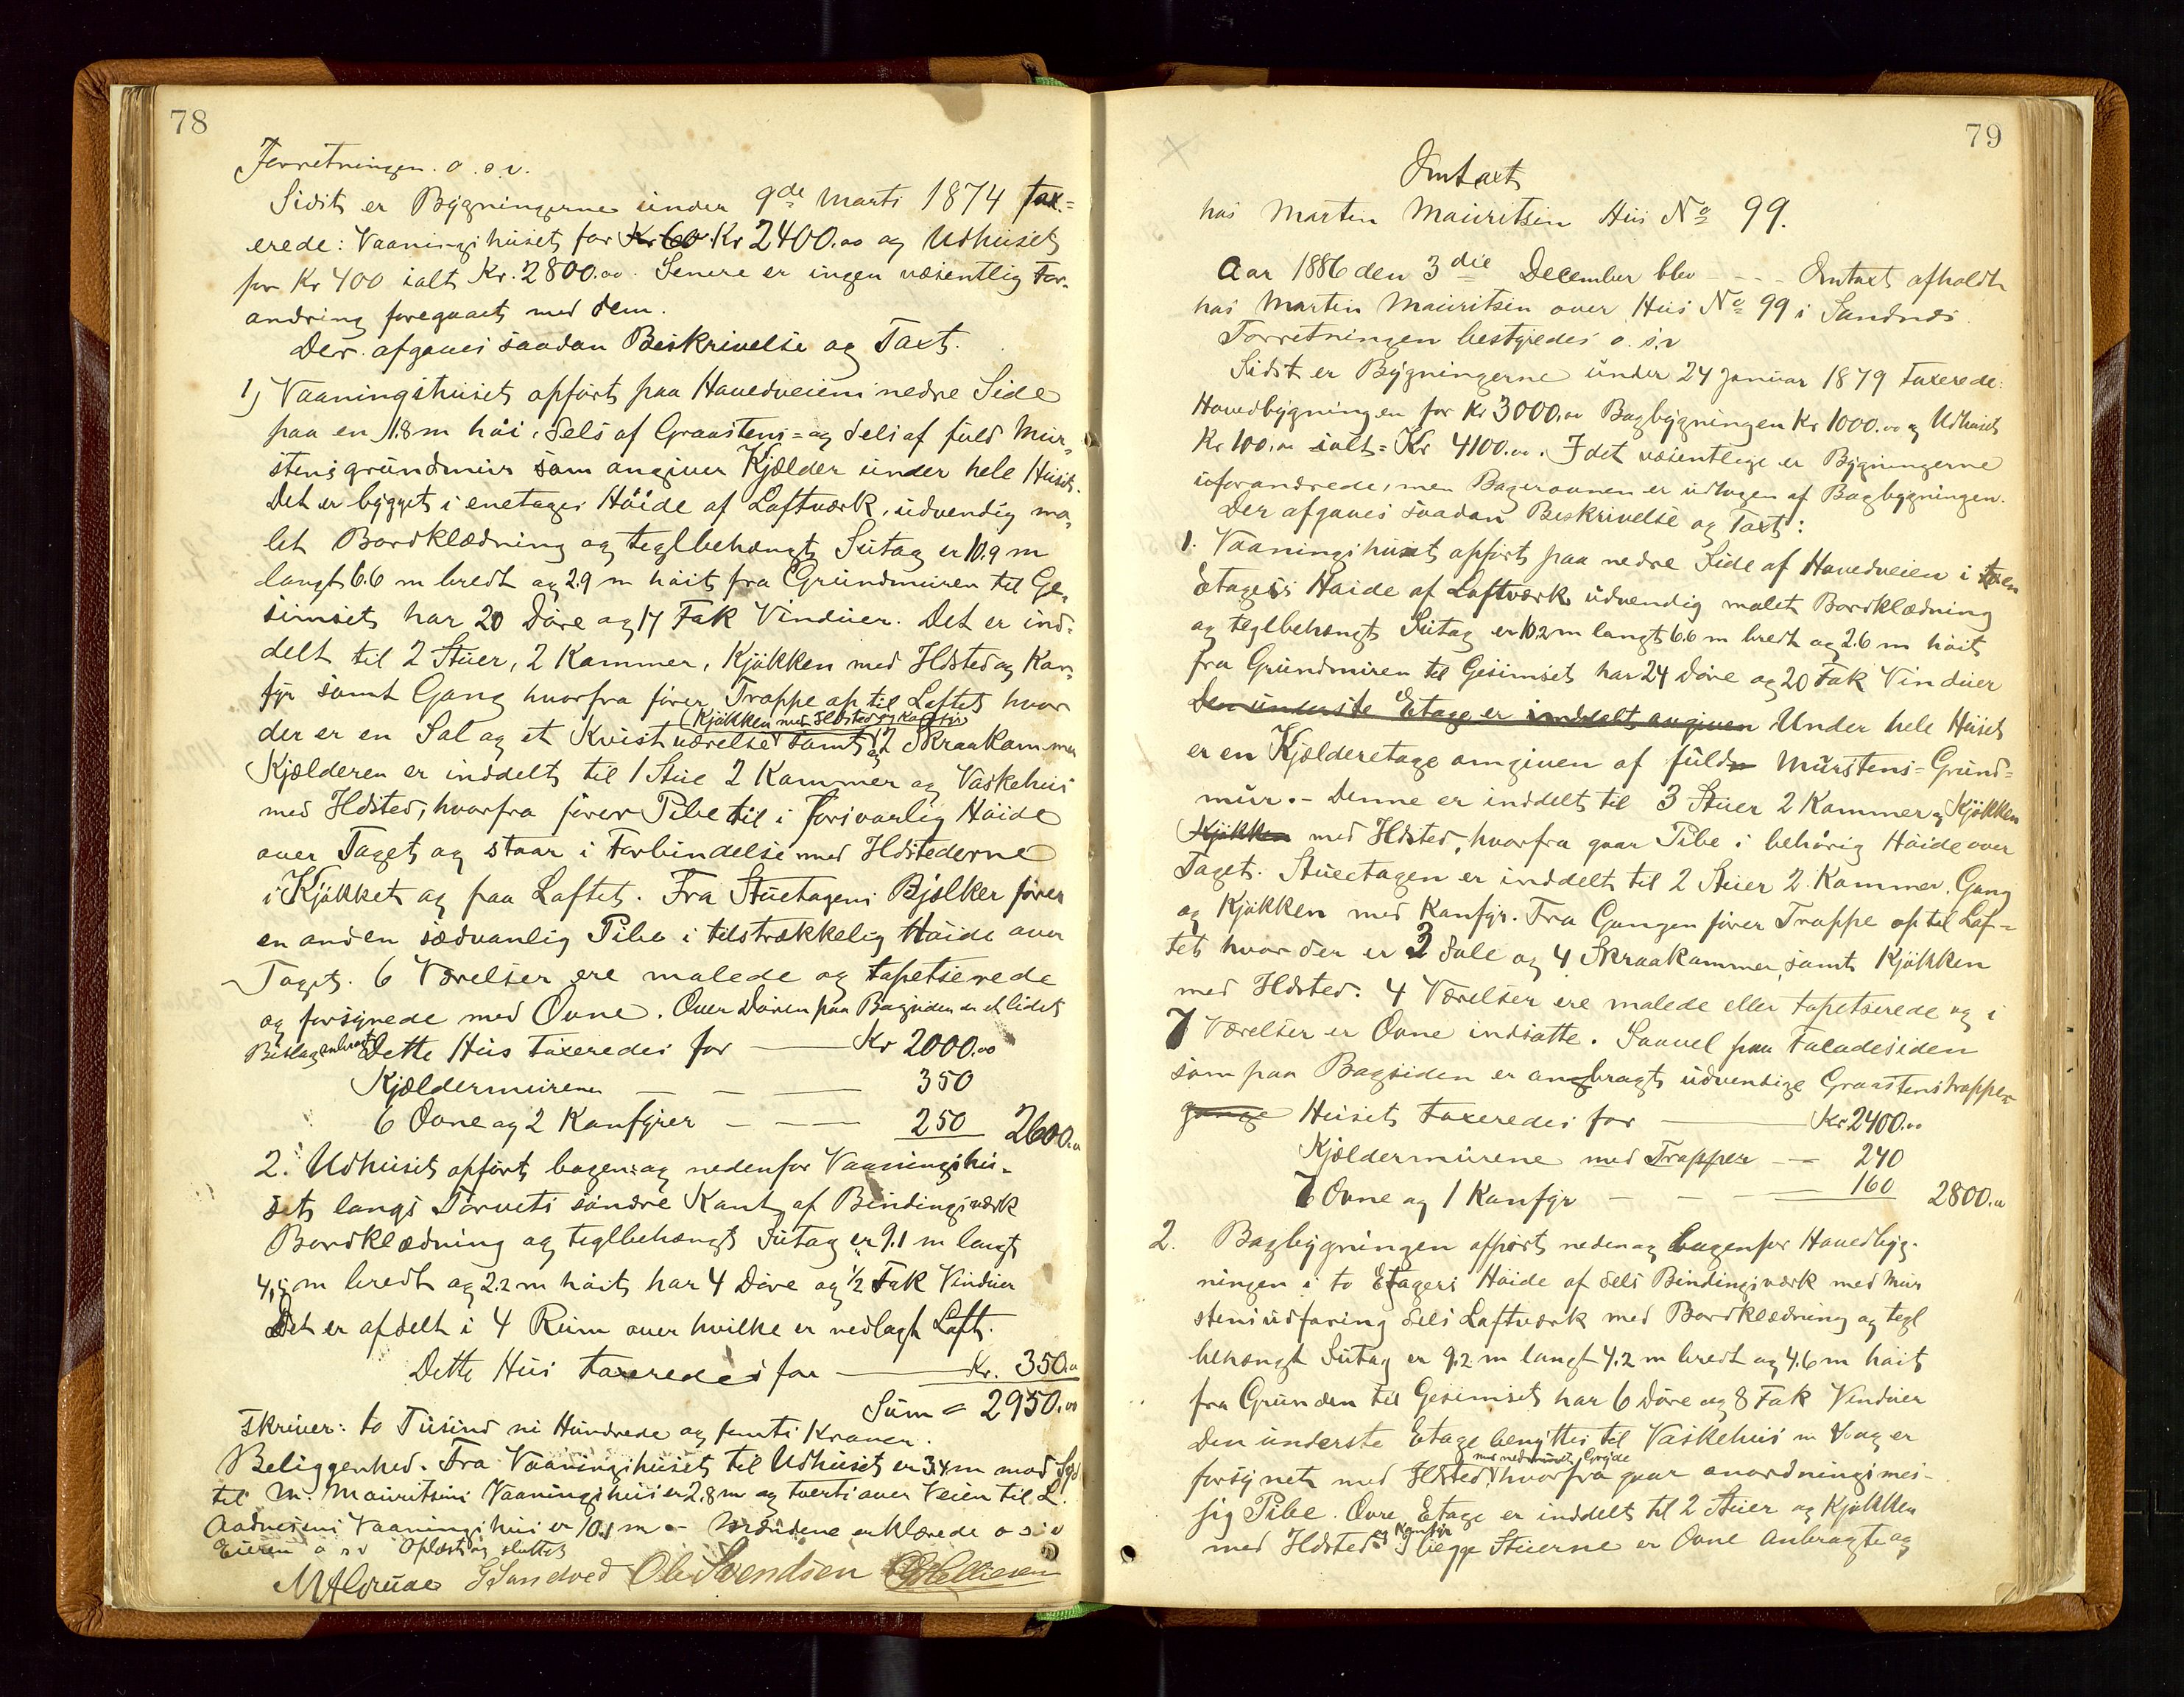 78
Forretningen. o. s. v.
Sidst er Bygningerne under 9de Marts 1874 tax-
erede: Vaaningshuset for Kr 60 Kr 2400.00 og Udhuset
for Kr 400 ialt Kr. 2800.00. Senere er ingen væsentlig For-
andring foregaaet med dem.
Der afgaves saadan Beskrivelse og Taxt.
1) Vaaningshuset opført paa Hovedveiens nedre Side
paa en 1.8 m høi, dels af Graastens- og dels af fuld Mur-
stensgrundmur som angiver Kjælder under hele Huset.
Det er bygget i enetages Høide af Laftværk, udvendig ma-
let Bordklædning og teglbehængt Sutag er 10.9 m
langt 6.6 m bredt og 2.9 m høit fra Grundmuren til Ge-
simset har 20 Døre og 17 Fak Vinduer. Det er ind-
delt til 2 Stuer, 2 Kammer, Kjøkken med Ildsted og Kom-
fyr samt Gang hvorfra fører Trappe op til Loftet hvor
(Kjøkken med Ildsted og Komfyr
der er en Sal og et Kvistværelse samt og 2 Skraakammer
Kjælderen er inddelt til 1 Stue 2 Kammer og Vaskehus
med Ildsted, hvorfra fører Pibe til i forsvarlig Høide
over Taget og staar i Forbindelse med Ildstederne
i Kjøkket og paa Loftet. Fra Stuetagens Bjelker fører
en anden sædvanlig Pibe i tilstrækkelig Høide over
Taget. 6 Værelser ere malede og tapetserede
og forsynede med Ovne. Over Døren paa Bagsiden er et lidet
Bislag anbragt Dette Hus taxeredes for — Kr 2000.00
Kjældermurene — — — 350
6 Ovne og 2 Komfyrer — — — 250 2600.00
2. Udhuset opført bagen- og nedenfor Vaaningshu-
set langs Torvets søndre Kant af Bindingsværk
Bordklædning og teglbehængt Sutag er 9.1 m langt
4,5 m bredt og 2.2 m høit har 4 Døre og 1/2 Fak Vinduer
Det er afdelt i 4 Rum over hvilke er nedlagt Loft.
Dette Hus taxeredes for — Kr. 350.00
Sum = 2950.00
skriver: to Tusind ni Hundrede og femti Kroner.
Beliggenhed. Fra Vaaningshuset til Udhuset er 3.4 m mod Syd
til M. Mauritsens Vaaningshus er 2.8 m og tverts over Veien til L.
Aadnesens Vaaningshus er 10.1 m – Mændene erklærede o s v
Eieren o s v Oplæst og sluttet
G Sandved Ole Svendsen
79
Omtaxt
hos Morten Mauritsen Hus No 99.
Aar 1886 den 3die December blev - - - Omtaxt afholdt
hos Morten Mauritsen over Hus No 99 i Sandnæs
Forretningen bestyredes o. s. v
Sidst er Bygningerne under 24 Januar 1879 taxerede:
Hovedbygningen for Kr 3000.00 Bagbygningen Kr 1000.00 og Udhuset
Kr 100.00 ialt = Kr 4100.00. I det væsentlige er Bygningerne
uforandrede, men Bagerovnen er udtagen af Bagbygningen.
Der afgaves saadan Beskrivelse og Taxt:
1. Vaaningshuset opført paa nedre Side af Hovedveien i en
Etages Høide af Laftværk udvendig malet Bordklædning
og teglbehængt Sutag er 10.2 m langt 6.6 m bredt og 2.6 m høit
fra Grundmuren til Gesimset har 24 Døre og 20 Fak Vinduer
Den underste Etage er inddelt angiven Under hele Huset
er en Kjælderetage omgiven af fuld Murstens-Grund-
mur. – Denne er inddelt til 3 Stuer 2 Kammer og Kjøkken
Kjøkken med Ildsted, hvorfra gaar Pibe i behørig Høide over
Taget. Stueetagen er inddelt til 2 Stuer 2 Kammer, Gang
og Kjøkken med Komfyr. Fra Gangen fører Trappe op til Lof-
tet hvor der er 3 Sale og 4 Skraakammer, samt Kjøkken
med Ildsted. 4 Værelser ere malede eller tapetserede og i
7 Værelser er Ovne indsatte. Saavel paa Facadesiden
som paa Bagsiden er anbragt udvendige Graastenstrapper
gange Huset taxeredes for — Kr 2400.00
Kjældermurene med Trapper — 240
7 Ovne og 1 Komfyr — — — 160 2800.00
2. Bagbygningen opført neden og bagenfor Hovedbyg-
ningen i to Etagers Høide af dels Bindingsværk med Mur
stensudforing dels Laftværk med Bordklædning og tegl
behængt Sutag er 9.2 m langt 4.2 m bredt og 4.6 m høit
fra Grunden til Gesimset har 6 Døre og 8 Fak Vinduer
Den underste Etage benyttes til Vaskehus m V og er
med nedmuret Gryde
forsynet med Ildsted hvorfra gaar anordningsmes-
sig Pibe. Øvre Etage er inddelt til 2 Stuer og Kjøkken
og Komfyr
med Ildsted. I begge Stuerne er Ovne anbragte og